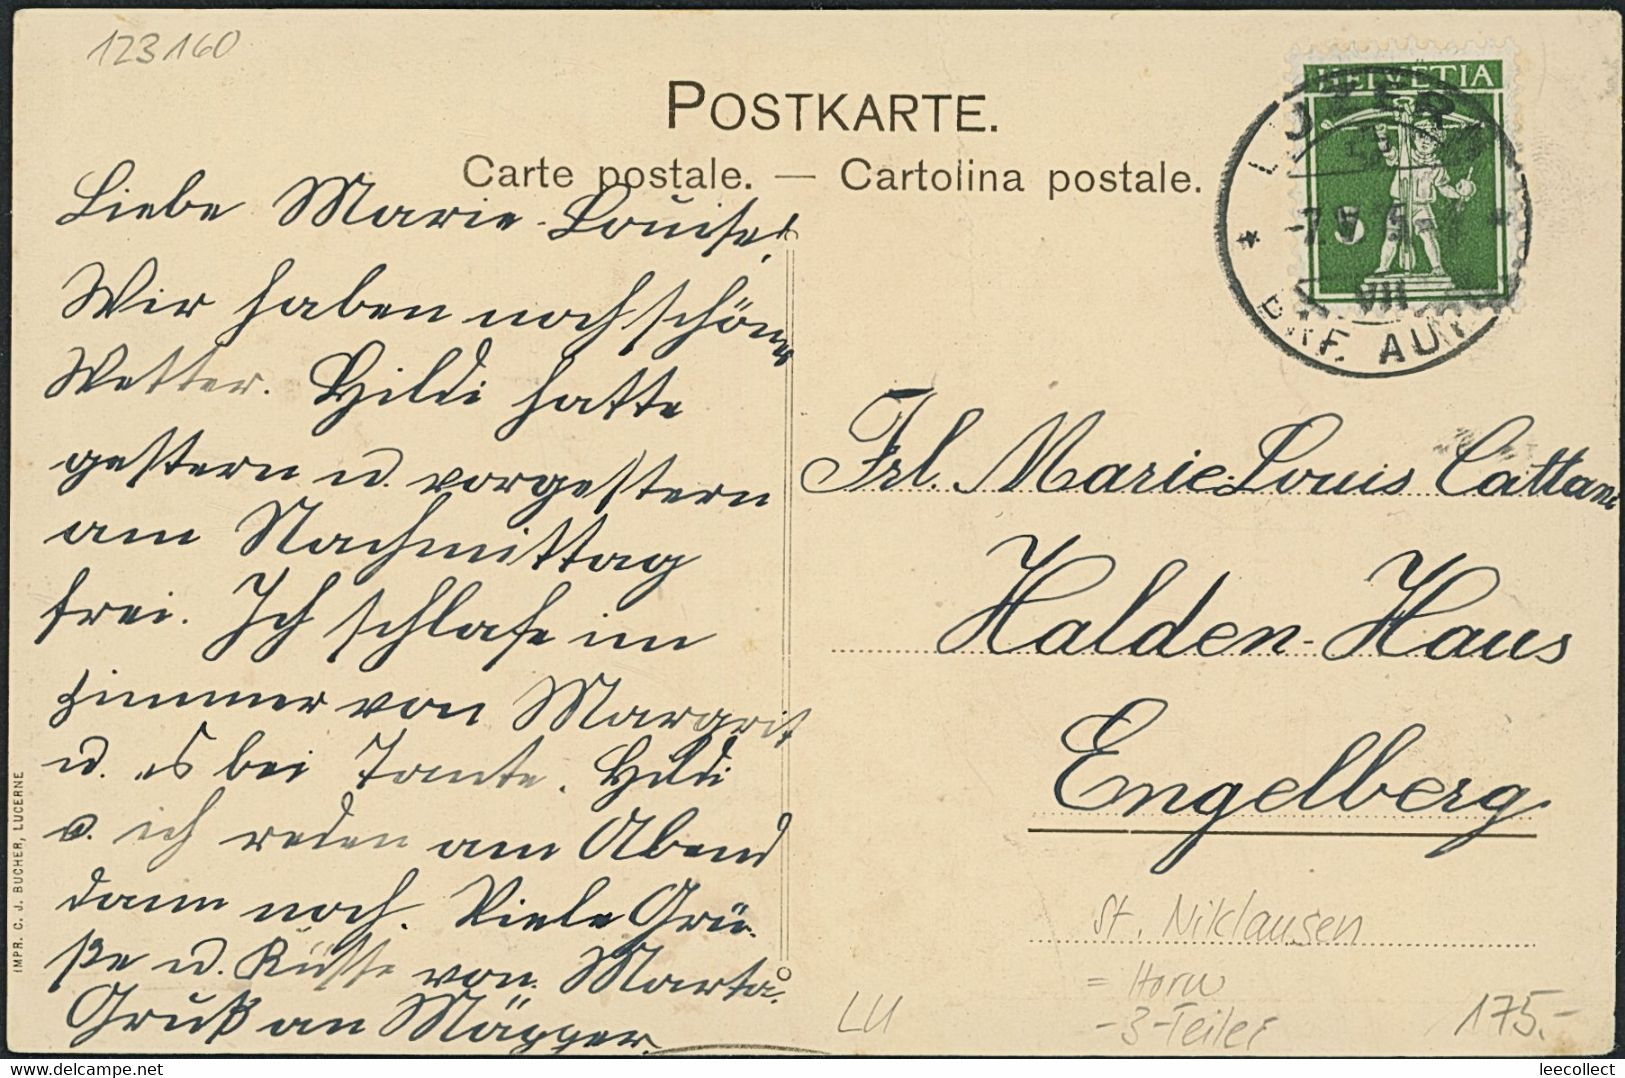 123160
POSTKARTE.
Carte postale. — Cartolina postale.
HELVETIA
5
LUZERN
VII
BRF. AUF
Liebe Marie-Louise!
Wir haben noch schönes
Wetter. Hildi hatte
gestern u. vorgestern
am Nachmittag
frei. Ich schlafe im
Zimmer von Margrit
u. es bei Tante. Hildi
u. ich reden am Abend
dann noch. Viele Grü-
ße u. Küsse von Marta.
Gruß an
Frl. Marie Louis Cattani
Halden-Haus
Engelberg.
St. Niklausen
= Horw
-3-Teiler
LU
175.-
IMPR. C. J. BUCHER, LUCERNE
Ihr Partner für Philatelie & Numismatik
leecollect